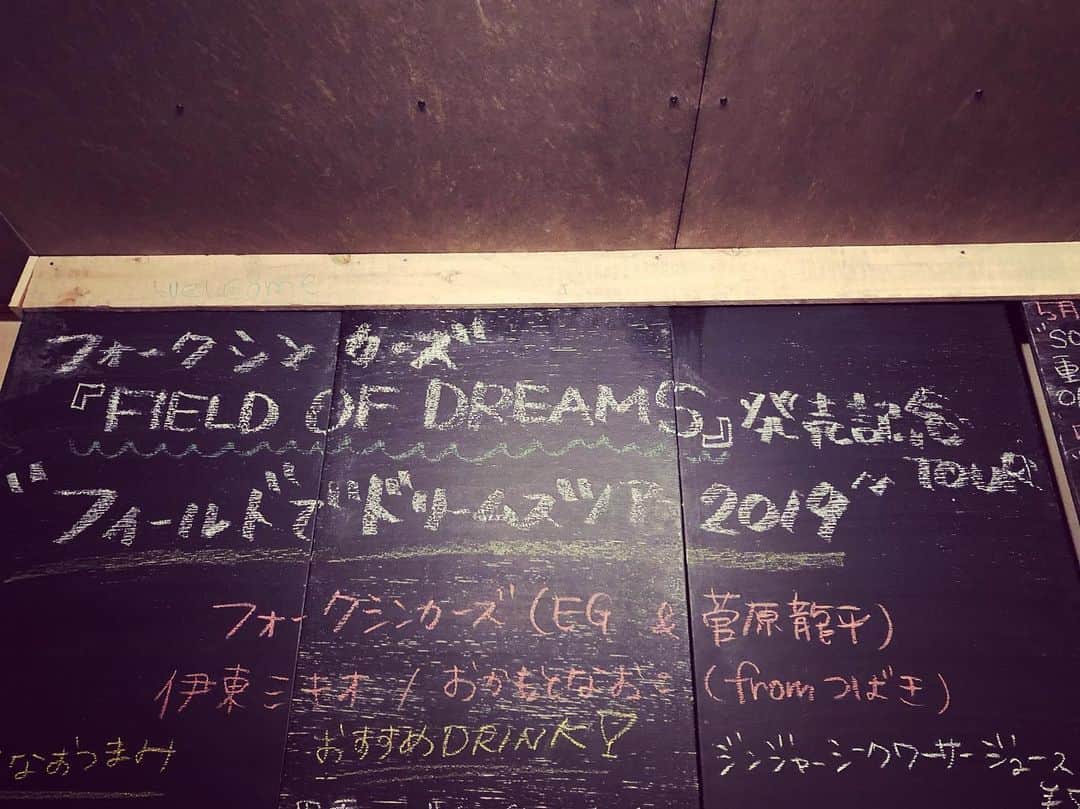 welcome
フォークシンカーズ
『FIELD OF DREAMS』発売記念
"フィールドオブドリームズツアー2019"〜TOUR
フォークシンカーズ(EG & 菅原龍平)
伊東ミキオ / おかもとなおこ(fromつばき)
なおつまみ
おすすめDRINK
ジンジャーシークワーサージュース
5月
"SO
重